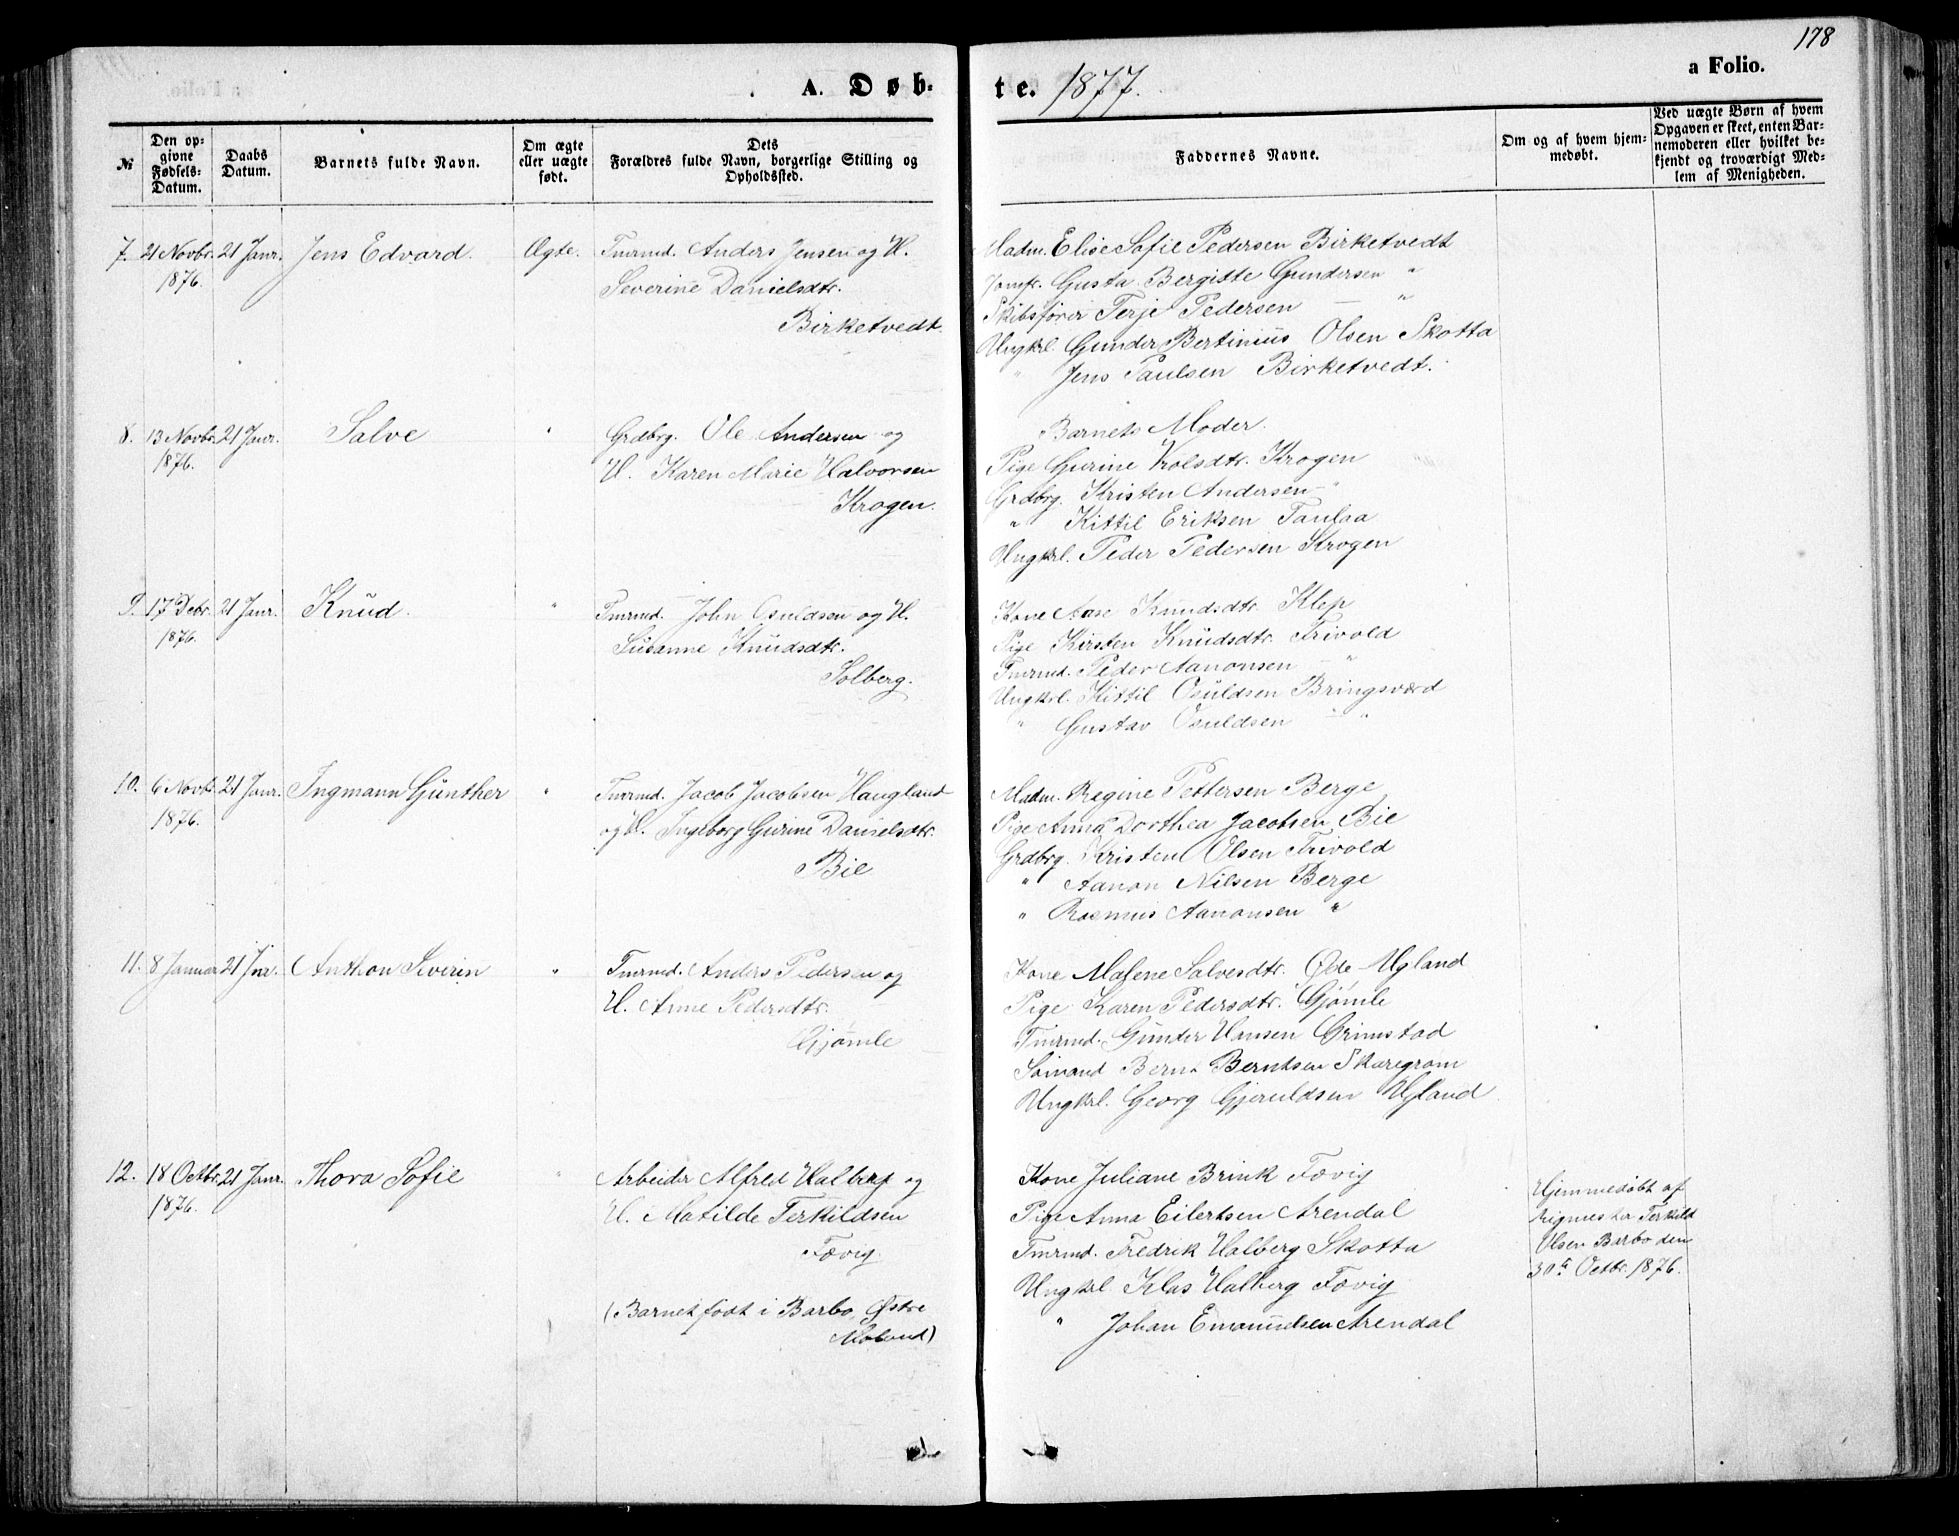 178
A. Døb-
te. 1877.
a Folio.
№
Den op-
givne
Fødsels-
Datum.
Daabs
Datum.
Barnets fulde Navn.
Om ægte
eller uægte
født.
Dets
Forældres fulde Navn, borgerlige Stilling og
Opholdssted.
Faddernes Navne.
Om og af hvem hjem-
medøbt.
Ved uægte Børn af hvem
Opgaven er skeet, enten Bar-
nemoderen eller hvilket be-
kjendt og troværdigt Med-
lem af Menigheden.
7. 21 Novbr. 1876. 21 Janr. Jens Edvard. Ægte.
Tmrmd. Anders Jensen og H.
Severine Danielsdtr.
Birketvedt.
Madm. Elise Sofie Pedersen Birketvedt
Jomfr. Gusta Bergitte Gundersen "
Skibsfører Terje Pedersen — "
Ungkrl. Gunder Bertinius Olsen Skotta
" Jens Paulsen Birketvedt.
8. 13 Novbr. 1876. 21 Janr. Salve "
Grdbrg. Ole Andersen og
H. Karen Marie Halvorsen
Krogen.
Barnets Moder.
Pige Gurine Kolsdtr. Krogen
Grdbrg. Kristen Andersen "
" Kittil Eriksen Taulaa
Ungkrl. Peder Pedersen Krogen
9. 17 Debr. 1876. 21 Janr. Knud. "
Tmrmd. John Osuldsen og H.
Susanne Knudsdtr.
Solberg.
Kone Aase Knudsdtr. Klep
Pige Kirsten Knudsdtr. Frivold
Tmrmd. Peder Aanonsen — "
Ungkrl. Kittil Osuldsen Bringsværd
" Gustav Osuldsen — "
10. 6 Novbr. 1876. 21 Janr. Ingmann Günther "
Tmrmd. Jacob Jacobsen Haugland
og H. Ingeborg Gurine Danielsdtr.
Bie
Madm. Regine Pettersen Berge
Pige Anna Dorthea Jacobsen Bie
Grdbrg. Kristen Olsen Frivold
" Aanon Nilsen Berge
" Rasmus Aanonsen "
11. 8 Januar 21 Jnr. Anthon Severin "
Tmrmd. Anders Pedersen og
H. Anne Pedersdtr.
Gjømle
Kone Malene Salvesdtr. Øde-Ugland
Pige Karen Pedersdtr. Gjømle
Tmrmd. Gunder Hansen Grimstad
Sømand Bernt Berntsen Skaregrøm
Ungkrl. Georg Gjeruldsen Ugland
12. 18 Octbr. 1876. 21 Janr. Thora Sofie "
Arbeider Alfred Halberg og
H. Matilde Terkildsen
Fævig.
(Barnet født i Barbo, Østre
Moland)
Kone Juliane Brink Fævig
Pige Anna Eilertsen Arendal
Tmrmd. Fredrik Halberg Skotta
Ungkrl. Klas Halberg Fævig
" Johan Emanuelsen Arendal
Hjemmedøbt af
Rigmester Terkild
Olsen Barbo den
30te Octbr. 1876.